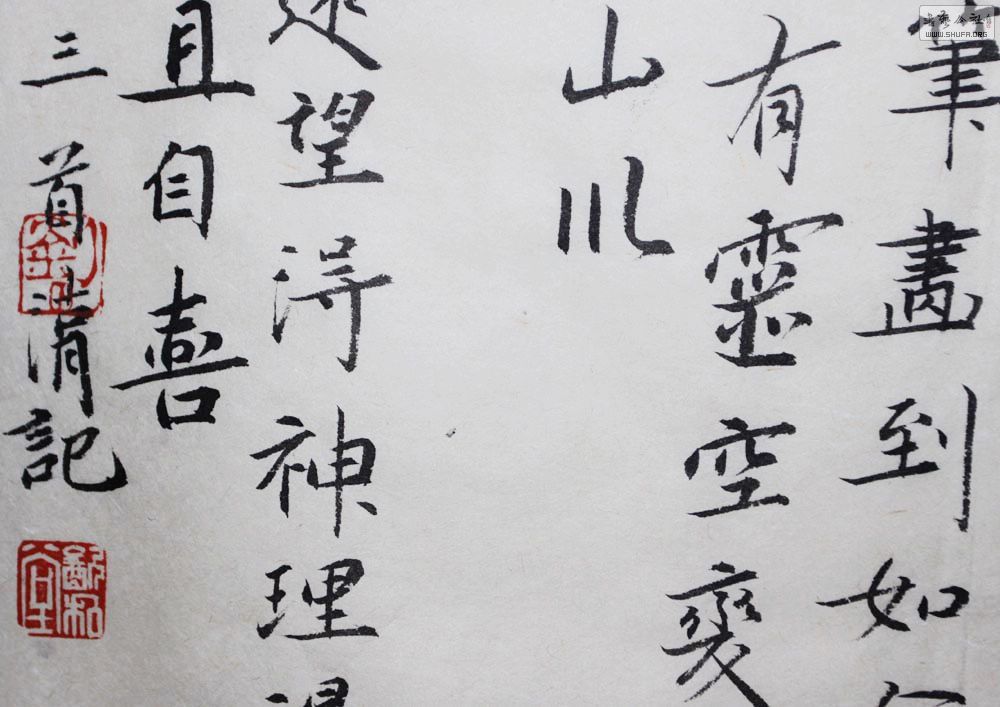 筆畫到如
有靈空
山川
望得神理
且自喜
三首涓記
WWW.SHUFA.ORG